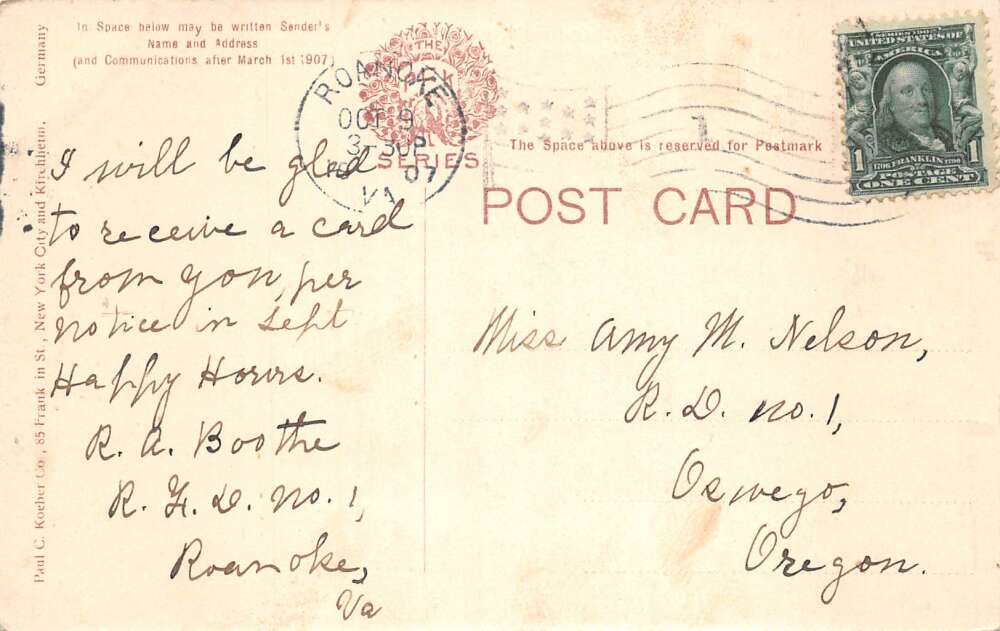 In Space below may be written Sender's
Name and Address
(and Communications after March 1st 1907)
THE
P C K
SERIES
ROANOKE
OCT 9
3-30P
07
VA
The Space above is reserved for Postmark
1
SERIES 1902
UNITED STATES OF
AMERICA
1706 FRANKLIN 1790
1 POSTAGE 1
ONE CENT
POST CARD
I will be glad
to receive a card
from you, per
notice in Sept
Happy Hours.
R. A. Boothe
R. F. D. No. 1,
Roanoke,
Va
Miss Amy M. Nelson,
R. D. No. 1,
Oswego,
Oregon.
Paul C. Koeber Co., 85 Frank in St., New York City and Kirchheim, Germany